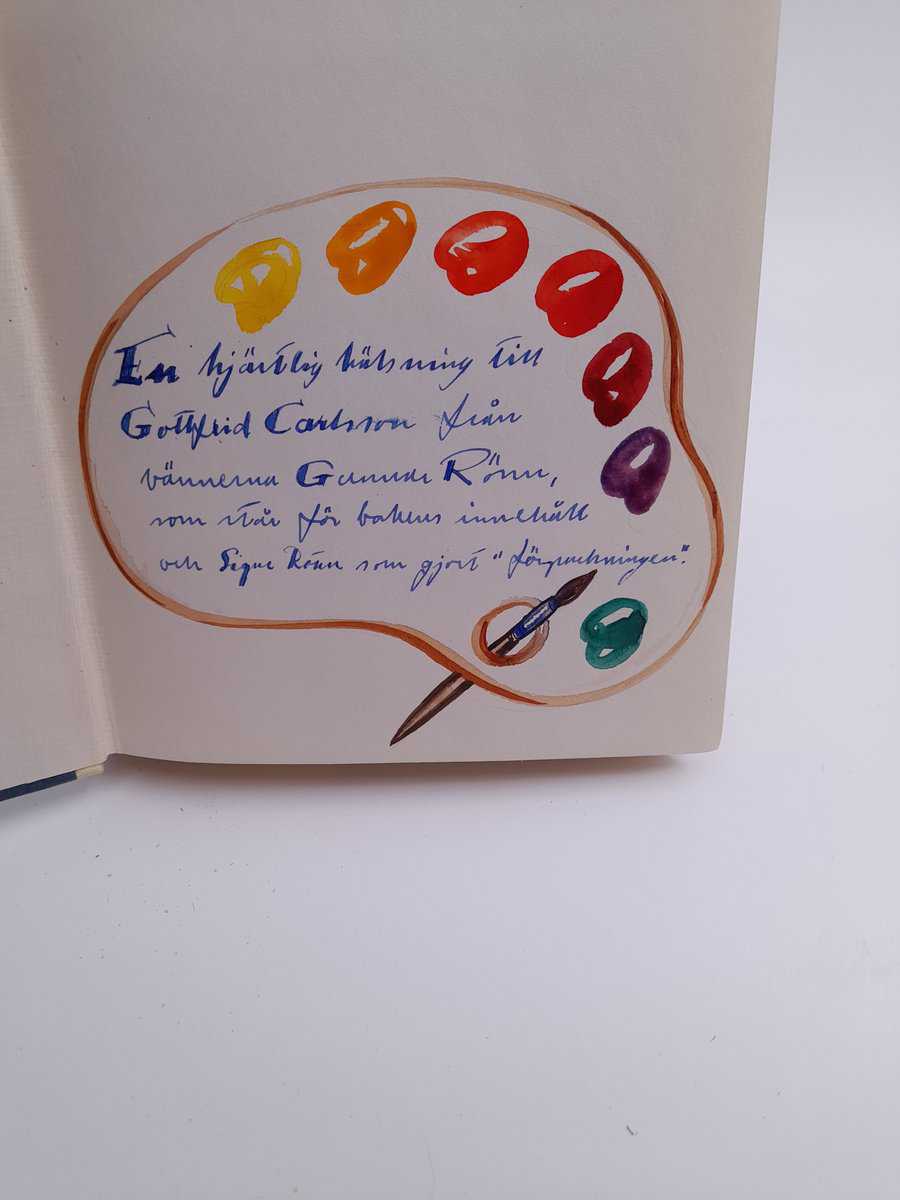 En hjärtlig hälsning till
Gottfrid Carlsson från
vännerna Gunnar Rönn,
som står för bokens innehåll
och Signe Rönn som gjort "förpackningen".